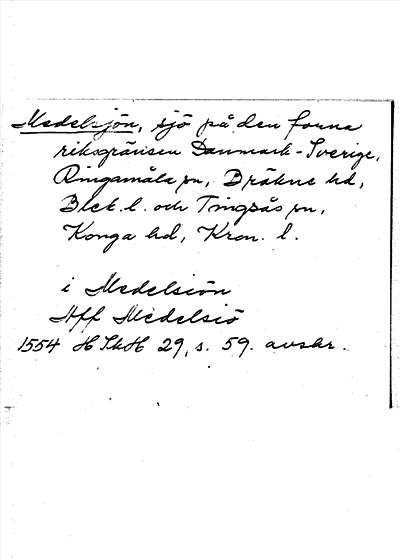 Medelsjön, sjö på den forna
riksgränsen Danmark-Sverige,
Ringamåla sn, Bräkne hd,
Blek. l. och Tingsås sn,
Konga hd, Kron. l.
i Medelsiön
Aff Medelsiö
1554 HSkH 29, s. 59. avskr.